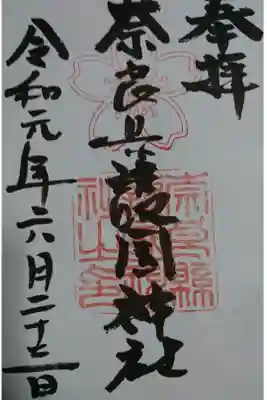 奉拝
奈良県護國神社
令和元年六月二十二日